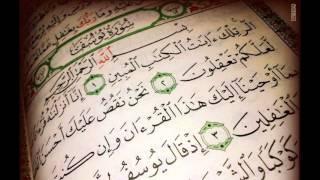 وَمَا رَبُّكَ بِغَٰفِلٍ
سُورَةُ يُوسُفَ
بِسْمِ ٱللَّهِ ٱلرَّحْمَٰنِ ٱلرَّحِيمِ
الٓر تِلْكَ ءَايَٰتُ ٱلْكِتَٰبِ ٱلْمُبِينِ ١ إِنَّآ أَنزَلْنَٰهُ
لَّعَلَّكُمْ تَعْقِلُونَ ٢ نَحْنُ نَقُصُّ عَلَيْكَ أَحْسَنَ
بِمَآ أَوْحَيْنَآ إِلَيْكَ هَٰذَا ٱلْقُرْءَانَ وَإِن كُنتَ
ٱلْغَٰفِلِينَ ٣ إِذْ قَالَ يُوسُفُ
كَوْكَبًا وَٱلشَّمْسَ